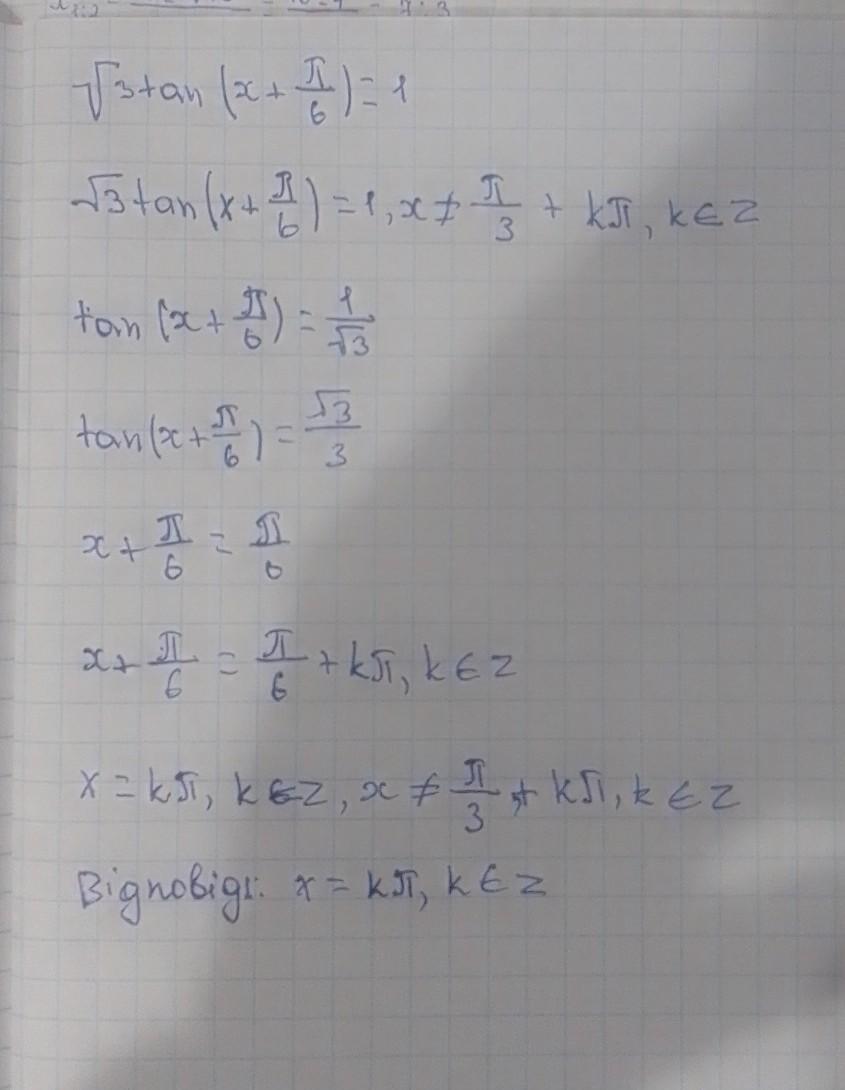 √3tan(x+π/6)=1
√3tan(x+π/6)=1, x≠π/3 + kπ, k∈Z
tan(x+π/6)=1/√3
tan(x+π/6)=√3/3
x+π/6=π/6
x+π/6=π/6+kπ, k∈Z
x=kπ, k∈Z, x≠π/3+kπ, k∈Z
Відповідь: x=kπ, k∈Z